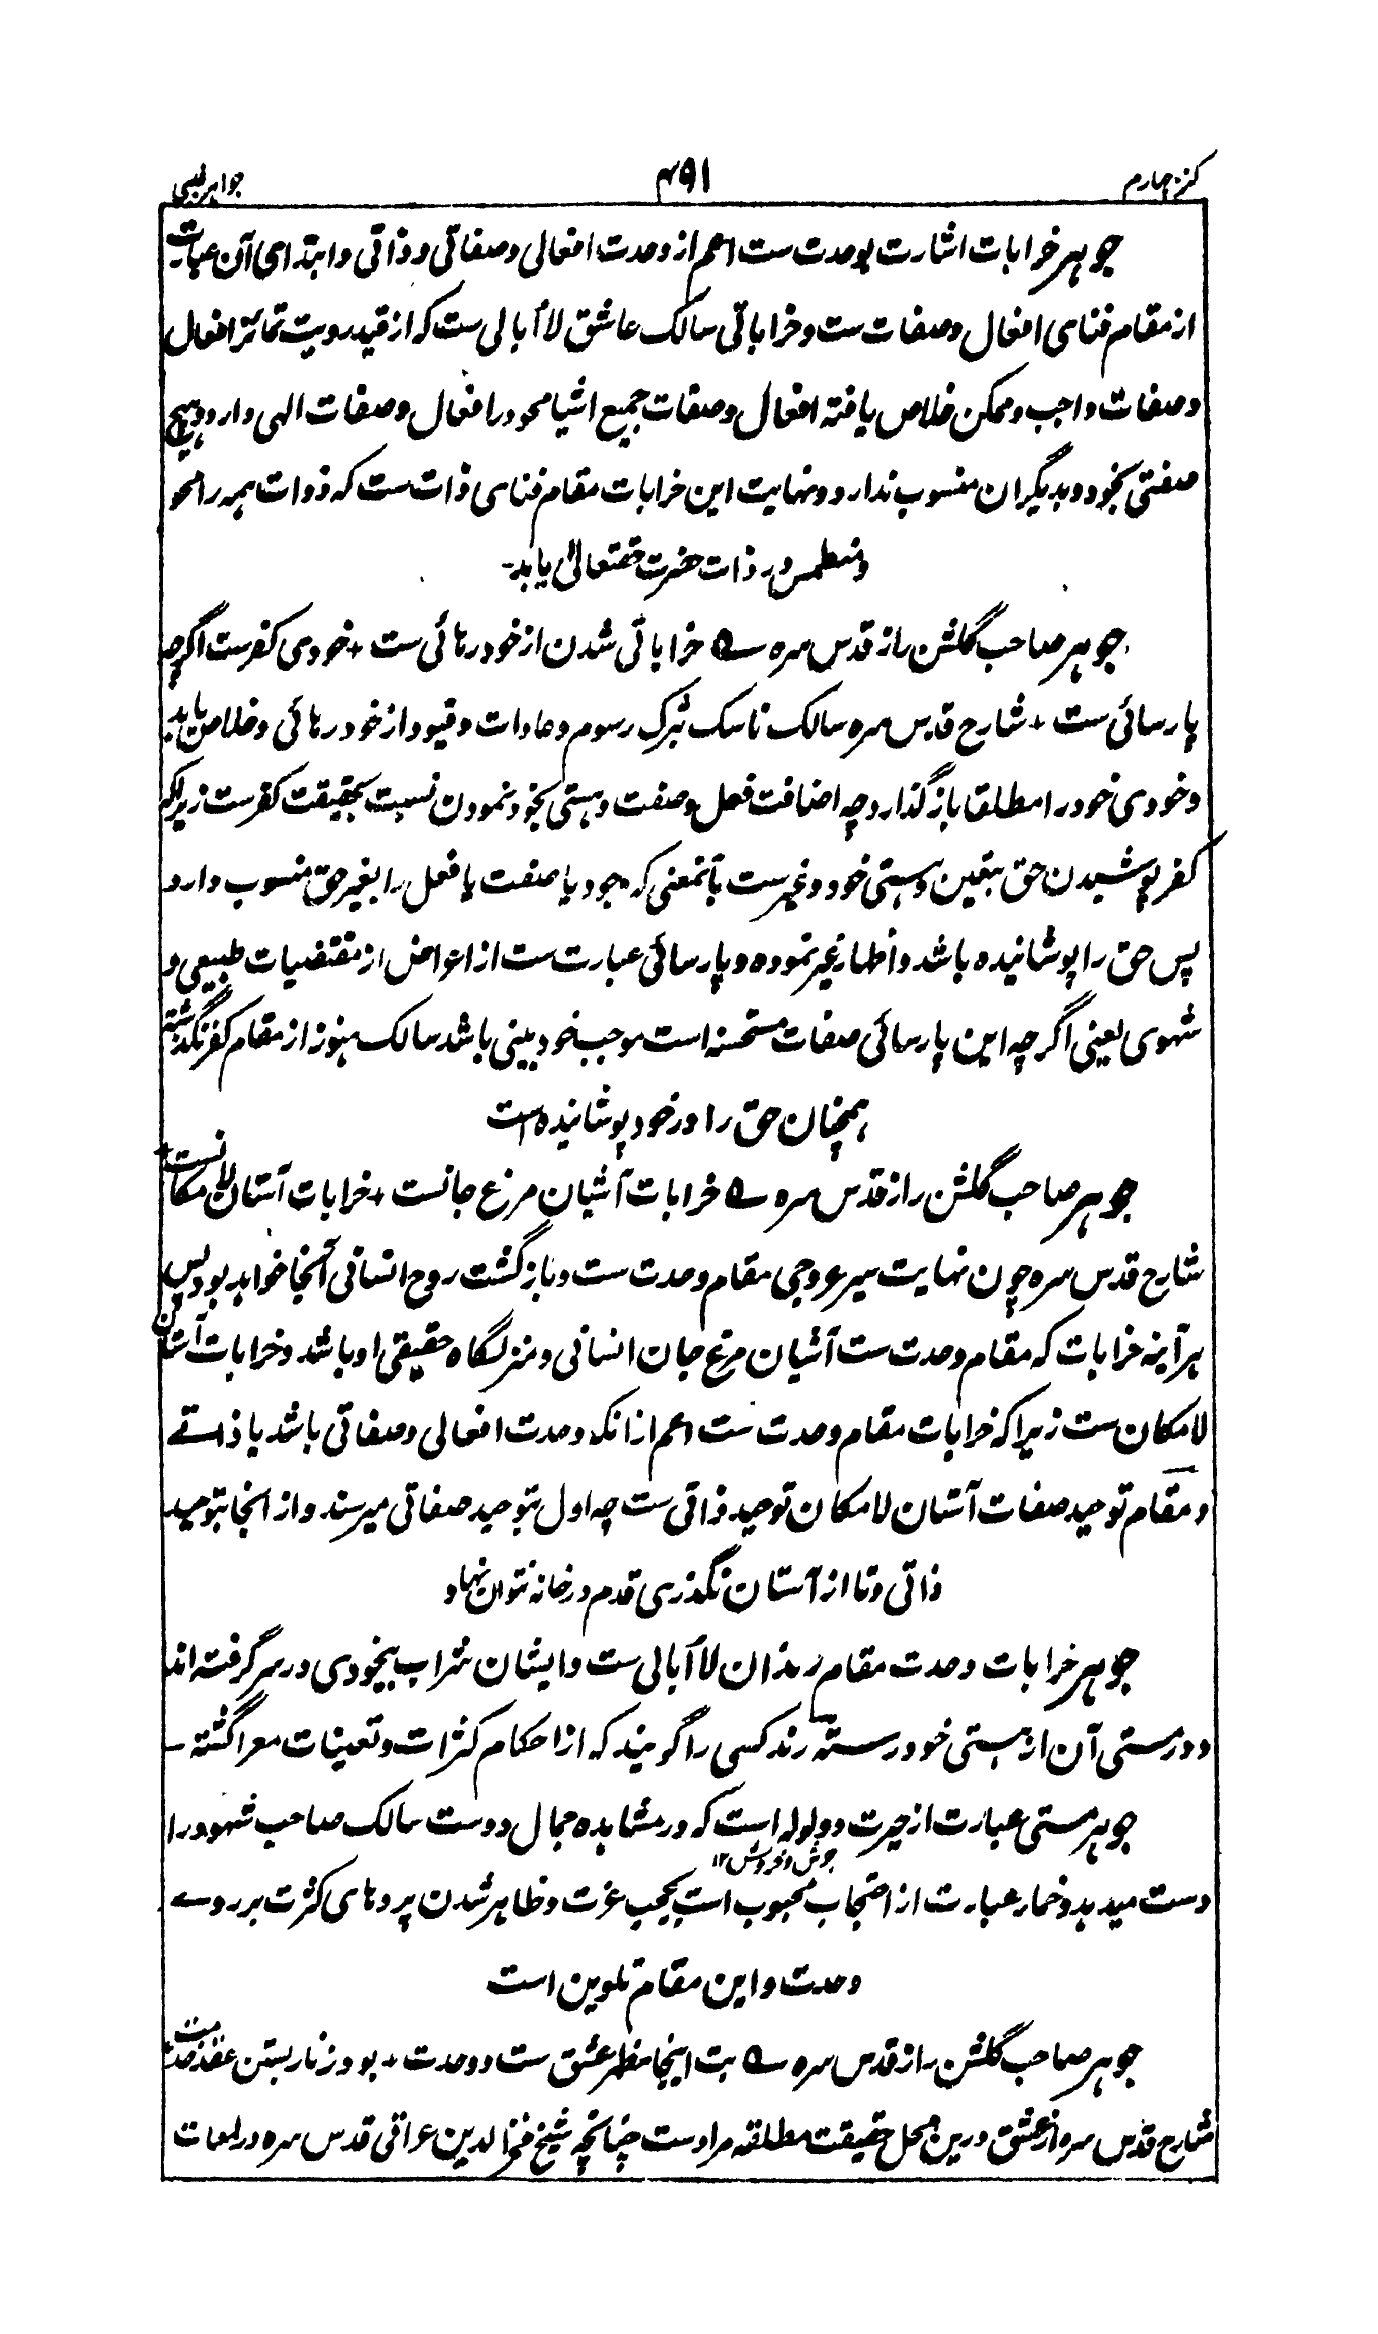 کنز چهارم ۴۹۱ جواهر غیبی
جوهر خرابات اشارت بوحدت ست اعم از وحدت افعالی و صفاتی و ذاتی و ابتدای آن عبارت
از مقام فنای افعال و صفات ست و خراباتی سالک عاشق لاأبالی ست که از قید رویت تمائز افعال
و صفات واجب و ممکن خلاص یافته افعال و صفات جمیع اشیا محو در افعال و صفات الهی دارد و هیچ
صفتی بخود و بدیگران منسوب ندارد و نهایت این خرابات مقام فنای ذات ست که ذوات همه را محو
و منطمس در ذات حضرت حقتعالیٰ یابد۔
جوهر صاحب گلشن راز قدس سره ؎ خراباتی شدن از خود رهائی ست + خودی کفرست اگرچه
پارسائی ست + شارح قدس سره سالک ناسک بترک رسوم و عادات و قیود از خود رهائی و خلاص یابد
و خودی خود را مطلقا باز گذارد چه اضافت فعل و صفت و هستی بخود نمودن نسبت بحقیقت کفرست زیراکه
کفر پوشیدن حق بتعین و هستی خود و غیرست بآنمعنی که وجود یا صفت یا فعل را بغیر حق منسوب دارد
پس حق را پوشانیده باشد و اظهار غیر نموده و پارسائی عبارت ست از اعراض از مقتضیات طبیعی و
شهوی یعنی اگرچه این پارسائی صفات مستحسنه است موجب خودبینی باشد سالک هنوز از مقام کفر نگذشته
همچنان حق را در خود پوشانیده است
جوهر صاحب گلشن راز قدس سره ؎ خرابات آشیان مرغ جانست + خرابات آستان لامکانست +
شارح قدس سره چون نهایت سیر عروجی مقام وحدت ست و بازگشت روح انسانی آنجا خواهد بود پس
هرآینه خرابات که مقام وحدت ست آشیان مرغ جان انسانی و منزلگاه حقیقی او باشد و خرابات آستان
لامکان ست زیراکه خرابات مقام وحدت ست اعم ازانکه وحدت افعالی و صفاتی باشد یا ذاتے
و مقام توحید صفات آستان لامکان توحید ذاتی ست چه اول بتوحید صفاتی میرسند و از انجا بتوحید
ذاتی و تا از آستان نگذری قدم در خانه نتوان نهاد
جوهر خرابات وحدت مقام رندان لاأبالی ست و ایشان شراب بیخودی در سر گرفته اند
و در مستی آن از هستی خود رسته رند کسی را گویند که از احکام کثرات و تعینات معرا گشته ۔
جوهر مستی عبارت از حیرت و ولوله است که در مشاهده جمال دوست سالک صاحب شهود را
جوش و خروش ۱۲
دست میدهد و خمار عبارت از احتجاب محبوب است بحجب عزت و ظاهر شدن پردهای کثرت بر روے
وحدت و این مقام تلوین است
جوهر صاحب گلشن راز قدس سره ؎ بت اینجا مظهر عشق ست و وحدت + بود زنار بستن عقد خدمت +
شارح قدس سره از عشق درین محل حقیقت مطلقه مرادست چنانچه شیخ فخرالدین عراقی قدس سره در لمعات